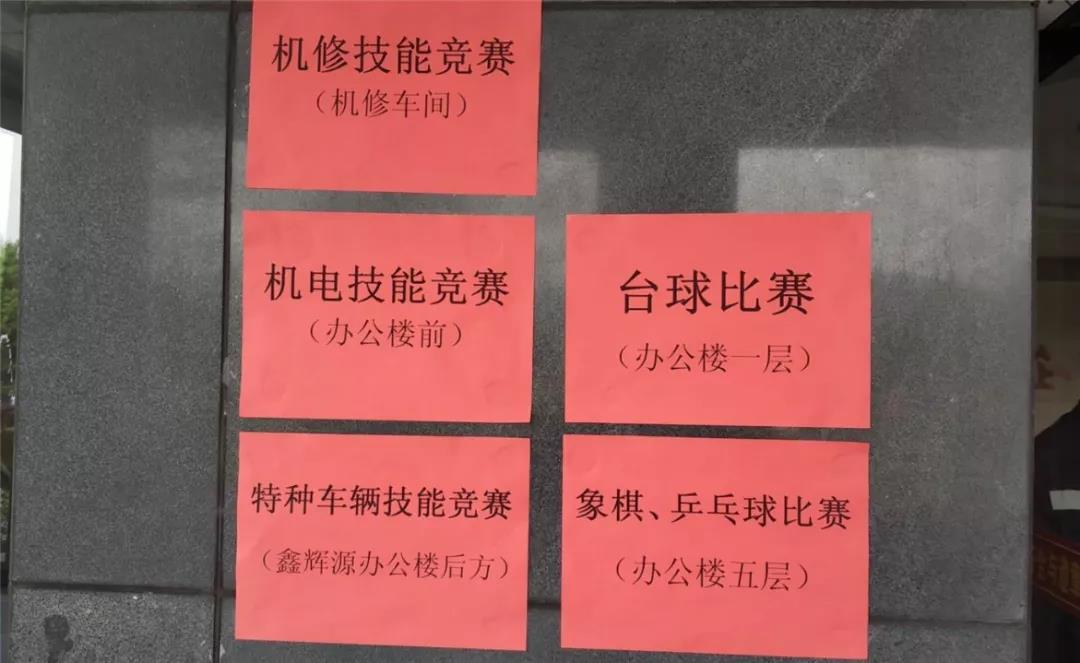 机修技能竞赛
（机修车间）
机电技能竞赛
（办公楼前）
台球比赛
（办公楼一层）
特种车辆技能竞赛
（鑫辉源办公楼后方）
象棋、乒乓球比赛
（办公楼五层）